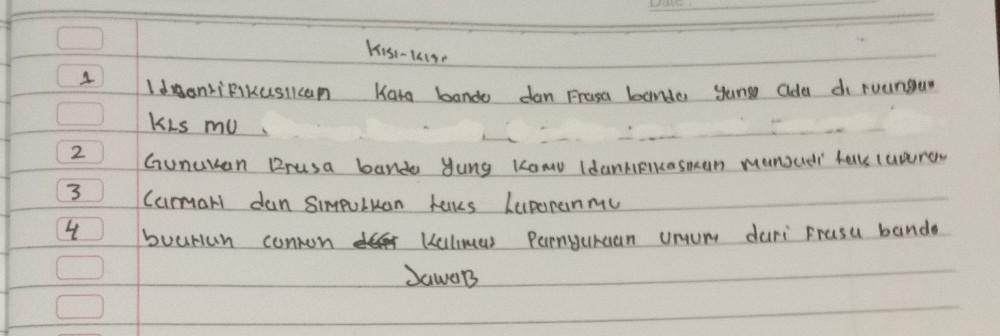 Date:
Kisi-kisi
1 Idantifikasikan Kata banda dan Frasa banda yang ada di ruangan
KLS mu
2 Gunakan Frasa banda yang kamu Idantifikasikan manjadi teks laporan
3 Carmati dan SIMPULKAN teks Laporanmu
4 buatlah contoh Kalimat Parnyataan umum dari Frasa banda
Jawab